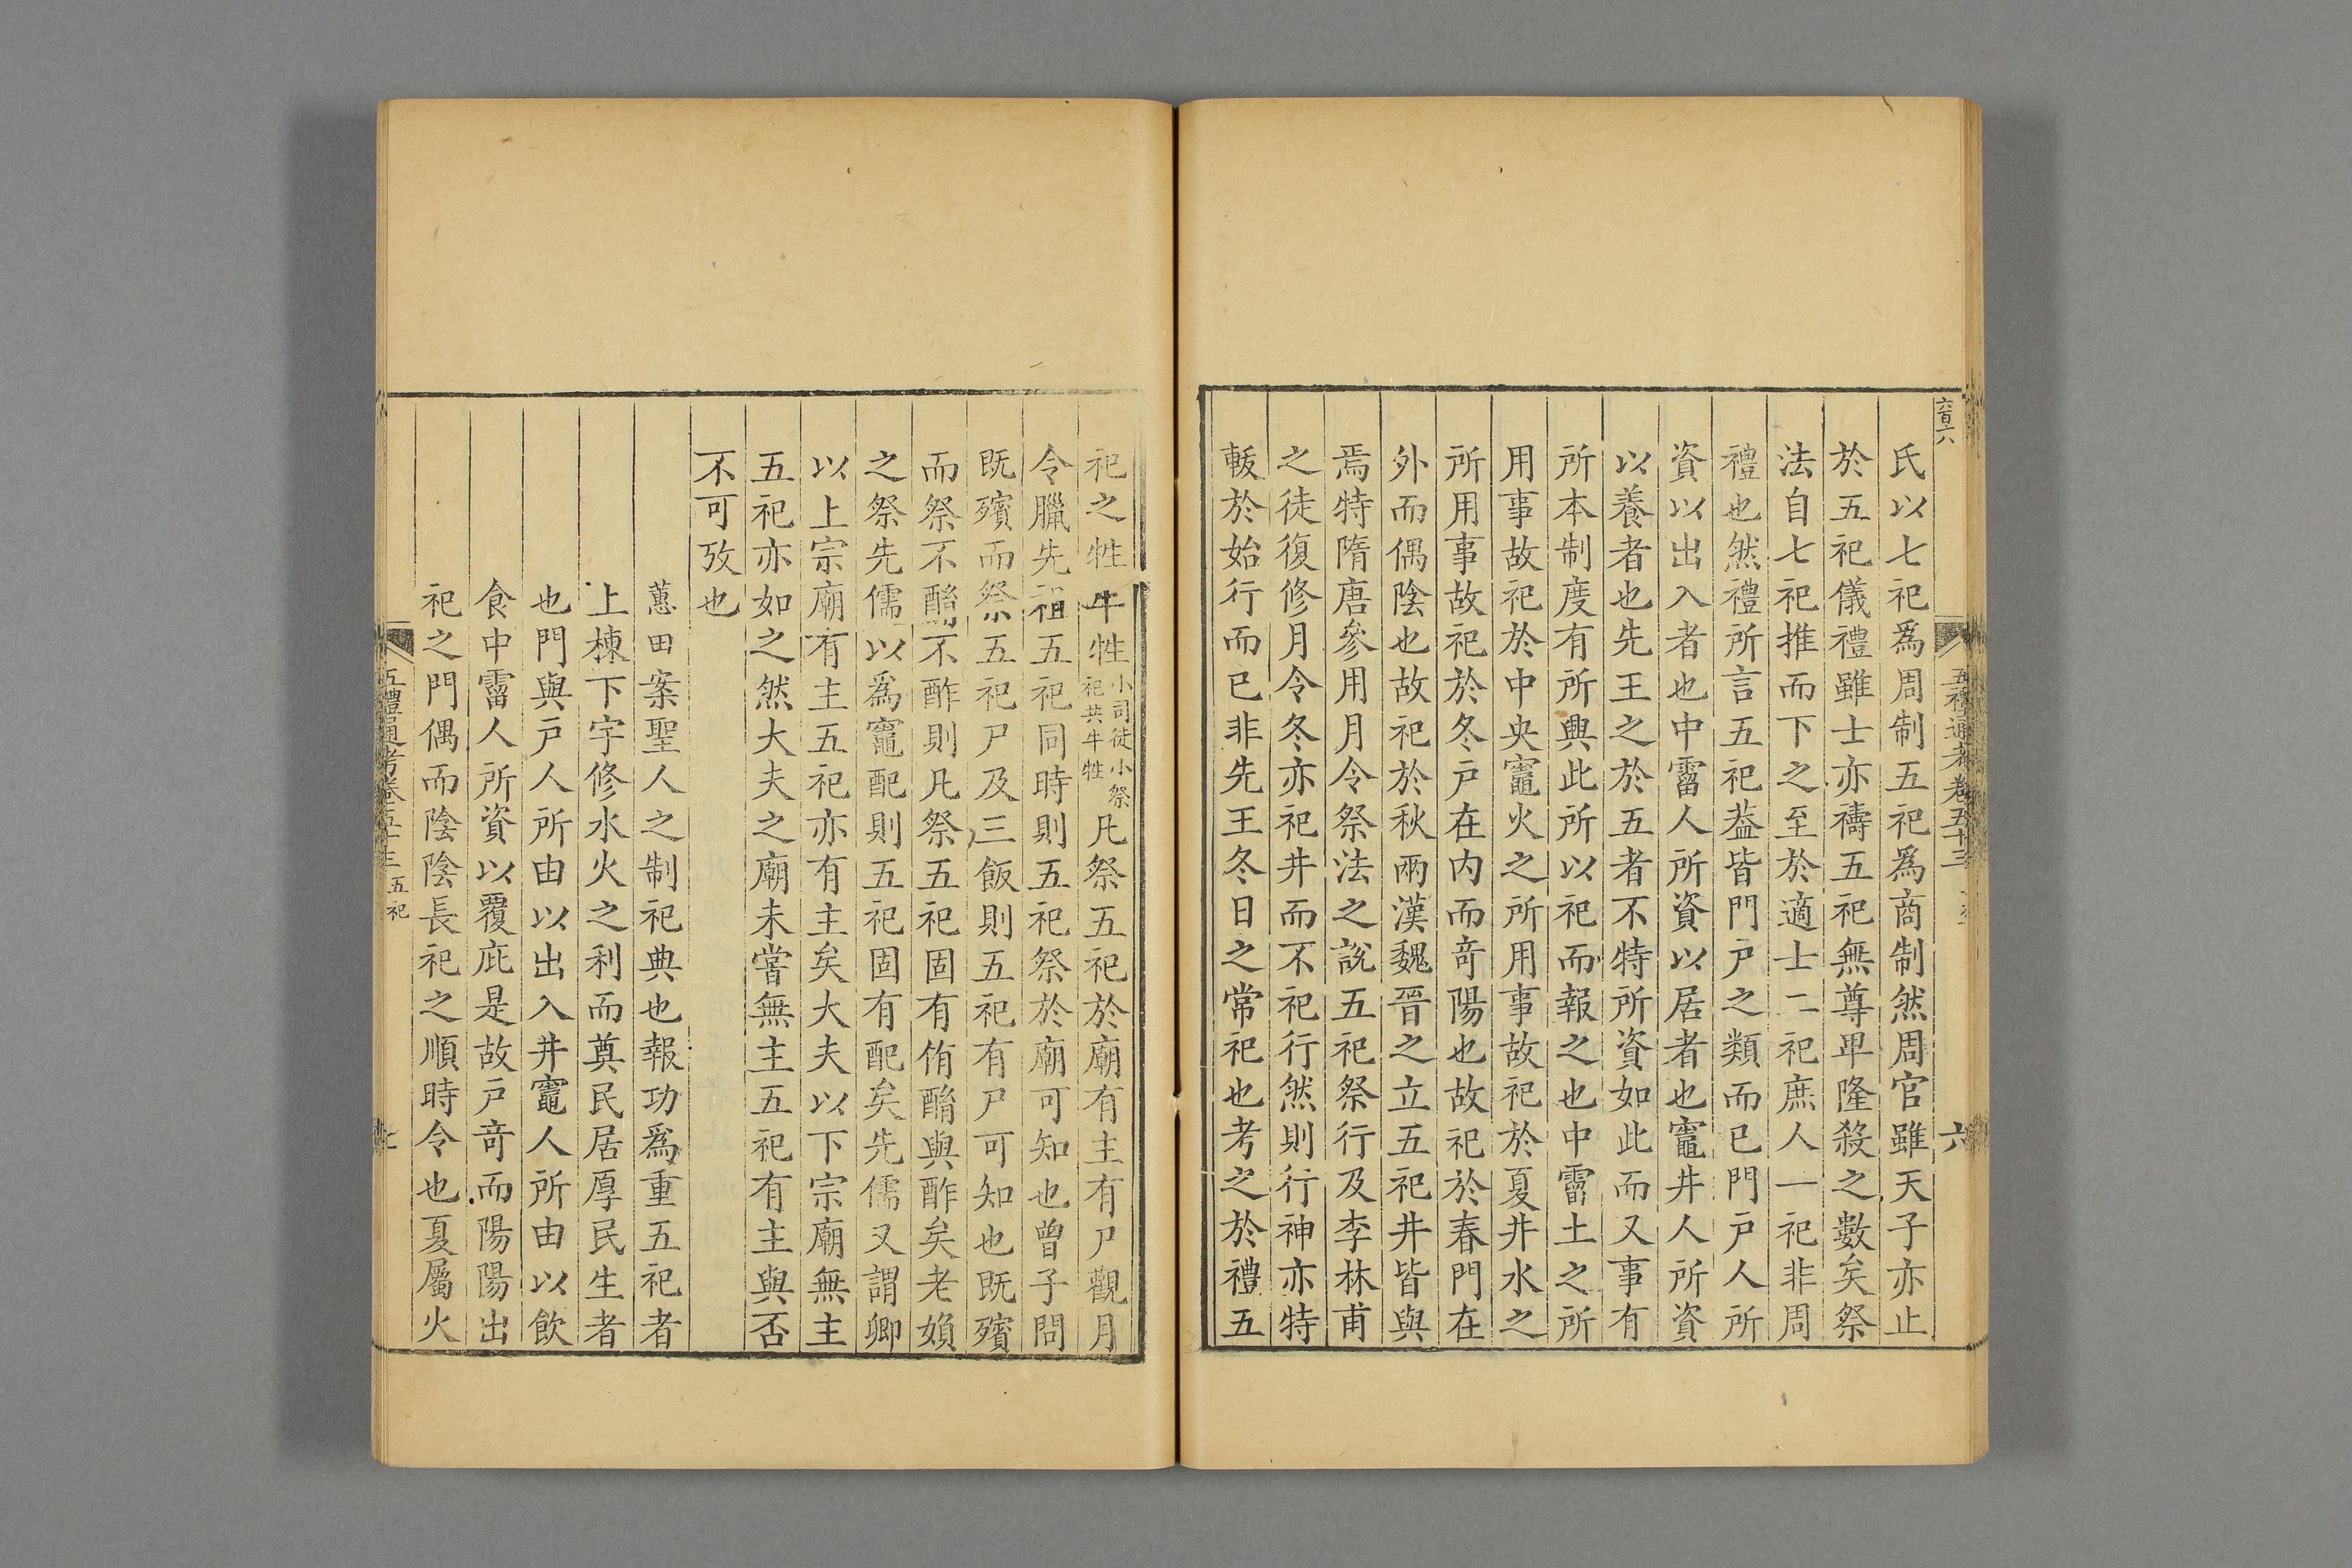 六百六
五禮通考卷五十三
六
氏以七祀爲周制五祀爲商制然周官雖天子亦止
於五祀儀禮雖士亦禱五祀無尊卑隆殺之數矣祭
法自七祀推而下之至於適士二祀庶人一祀非周
禮也然禮所言五祀葢皆門戸之類而已門戸人所
資以出入者也中霤人所資以居者也竈井人所資
以養者也先王之於五者不特所資如此而又事有
所本制度有所興此所以祀而報之也中霤土之所
用事故祀於中央竈火之所用事故祀於夏井水之
所用事故祀於冬戸在内而竒陽也故祀於春門在
外而偶陰也故祀於秋兩漢魏晉之立五祀井皆與
焉特隋唐參用月令祭法之說五祀祭行及李林甫
之徒復修月令冬亦祀井而不祀行然則行神亦特
軷於始行而已非先王冬日之常祀也考之於禮五
祀之牲牛牲小司徒小祭祀共牛牲凡祭五祀於廟有主有尸觀月
令臘先祖五祀同時則五祀祭於廟可知也曾子問
既殯而祭五祀尸及三飯則五祀有尸可知也既殯
而祭不酳不酢則凡祭五祀固有侑酳與酢矣老婦
之祭先儒以爲竈配則五祀固有配矣先儒又謂卿
以上宗廟有主五祀亦有主矣大夫以下宗廟無主
五祀亦如之然大夫之廟未嘗無主五祀有主與否
不可攷也
蕙田案聖人之制祀典也報功爲重五祀者
上棟下宇修水火之利而奠民居厚民生者
也門與戸人所由以出入井竈人所由以飲
食中霤人所資以覆庇是故戸竒而陽陽出
祀之門偶而陰陰長祀之順時令也夏屬火
五禮通考卷五十三 五祀
七